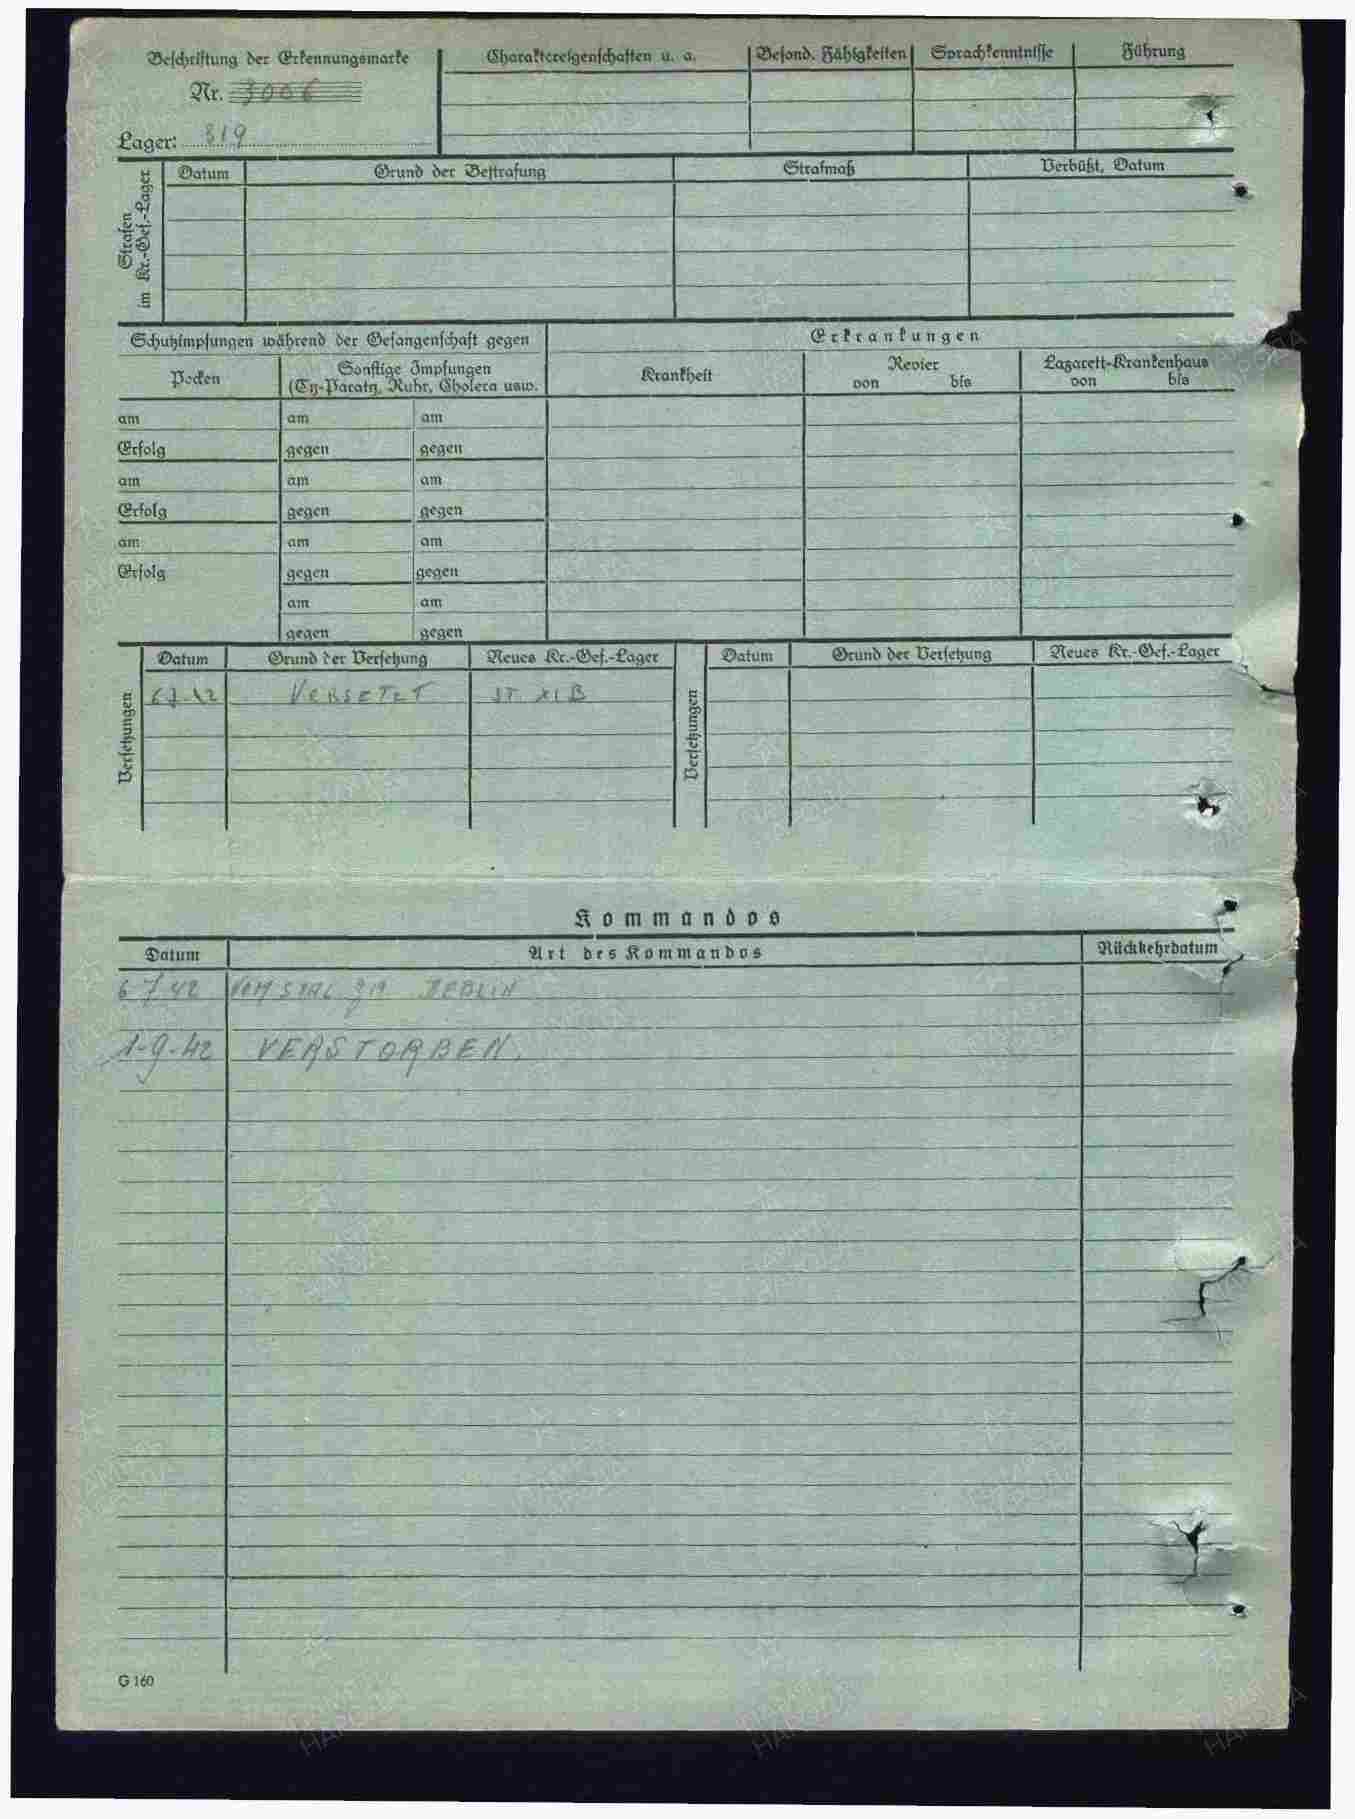 Beschriftung der Erkennungsmarke
Nr. 3006
Lager: 319
Charaktereigenschaften u. a.
Besond. Fähigkeiten
Sprachkenntnisse
Führung
Strafen
im Kr.-Gef.-Lager
Datum
Grund der Bestrafung
Strafmaß
Verbüßt, Datum
Schutzimpfungen während der Gefangenschaft gegen
Erkrankungen
Pocken
Sonstige Impfungen
(Ty-Paraty, Ruhr, Cholera usw.
Krankheit
Revier
von bis
Lazarett-Krankenhaus
von bis
am am am
Erfolg gegen gegen
am am am
Erfolg gegen gegen
am am am
Erfolg gegen gegen
am am
gegen gegen
Versetzungen
Datum Grund der Versetzung Neues Kr.-Gef.-Lager
6.7.42 VERSETZT ST. XI B
Versetzungen
Datum Grund der Versetzung Neues Kr.-Gef.-Lager
Kommandos
Datum Art des Kommandos Rückkehrdatum
6 7 42 VOM STAL
1-9-42 VERSTORBEN.
G 160
НАРОДА